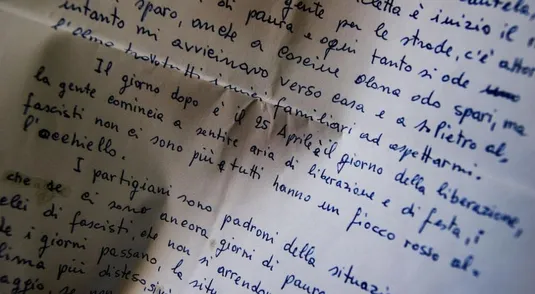 gente per le strade, c'è
di paura e ogni tanto si ode
sparo, anche a Cascine Olona odo spari, ma
intanto mi avvicinavo verso casa e a S. Pietro al
l'olmo trovo tutti i miei familiari ad aspettarmi.
Il giorno dopo è il 25 Aprile è il giorno della liberazione,
la gente comincia a sentire aria di liberazione e di festa, i
fascisti non ci sono più e tutti hanno un fiocco rosso al-
l'occhiello.
I partigiani sono padroni della
che se ci sono ancora giorni di
di fascisti che non si
i giorni passano, la
più
se non